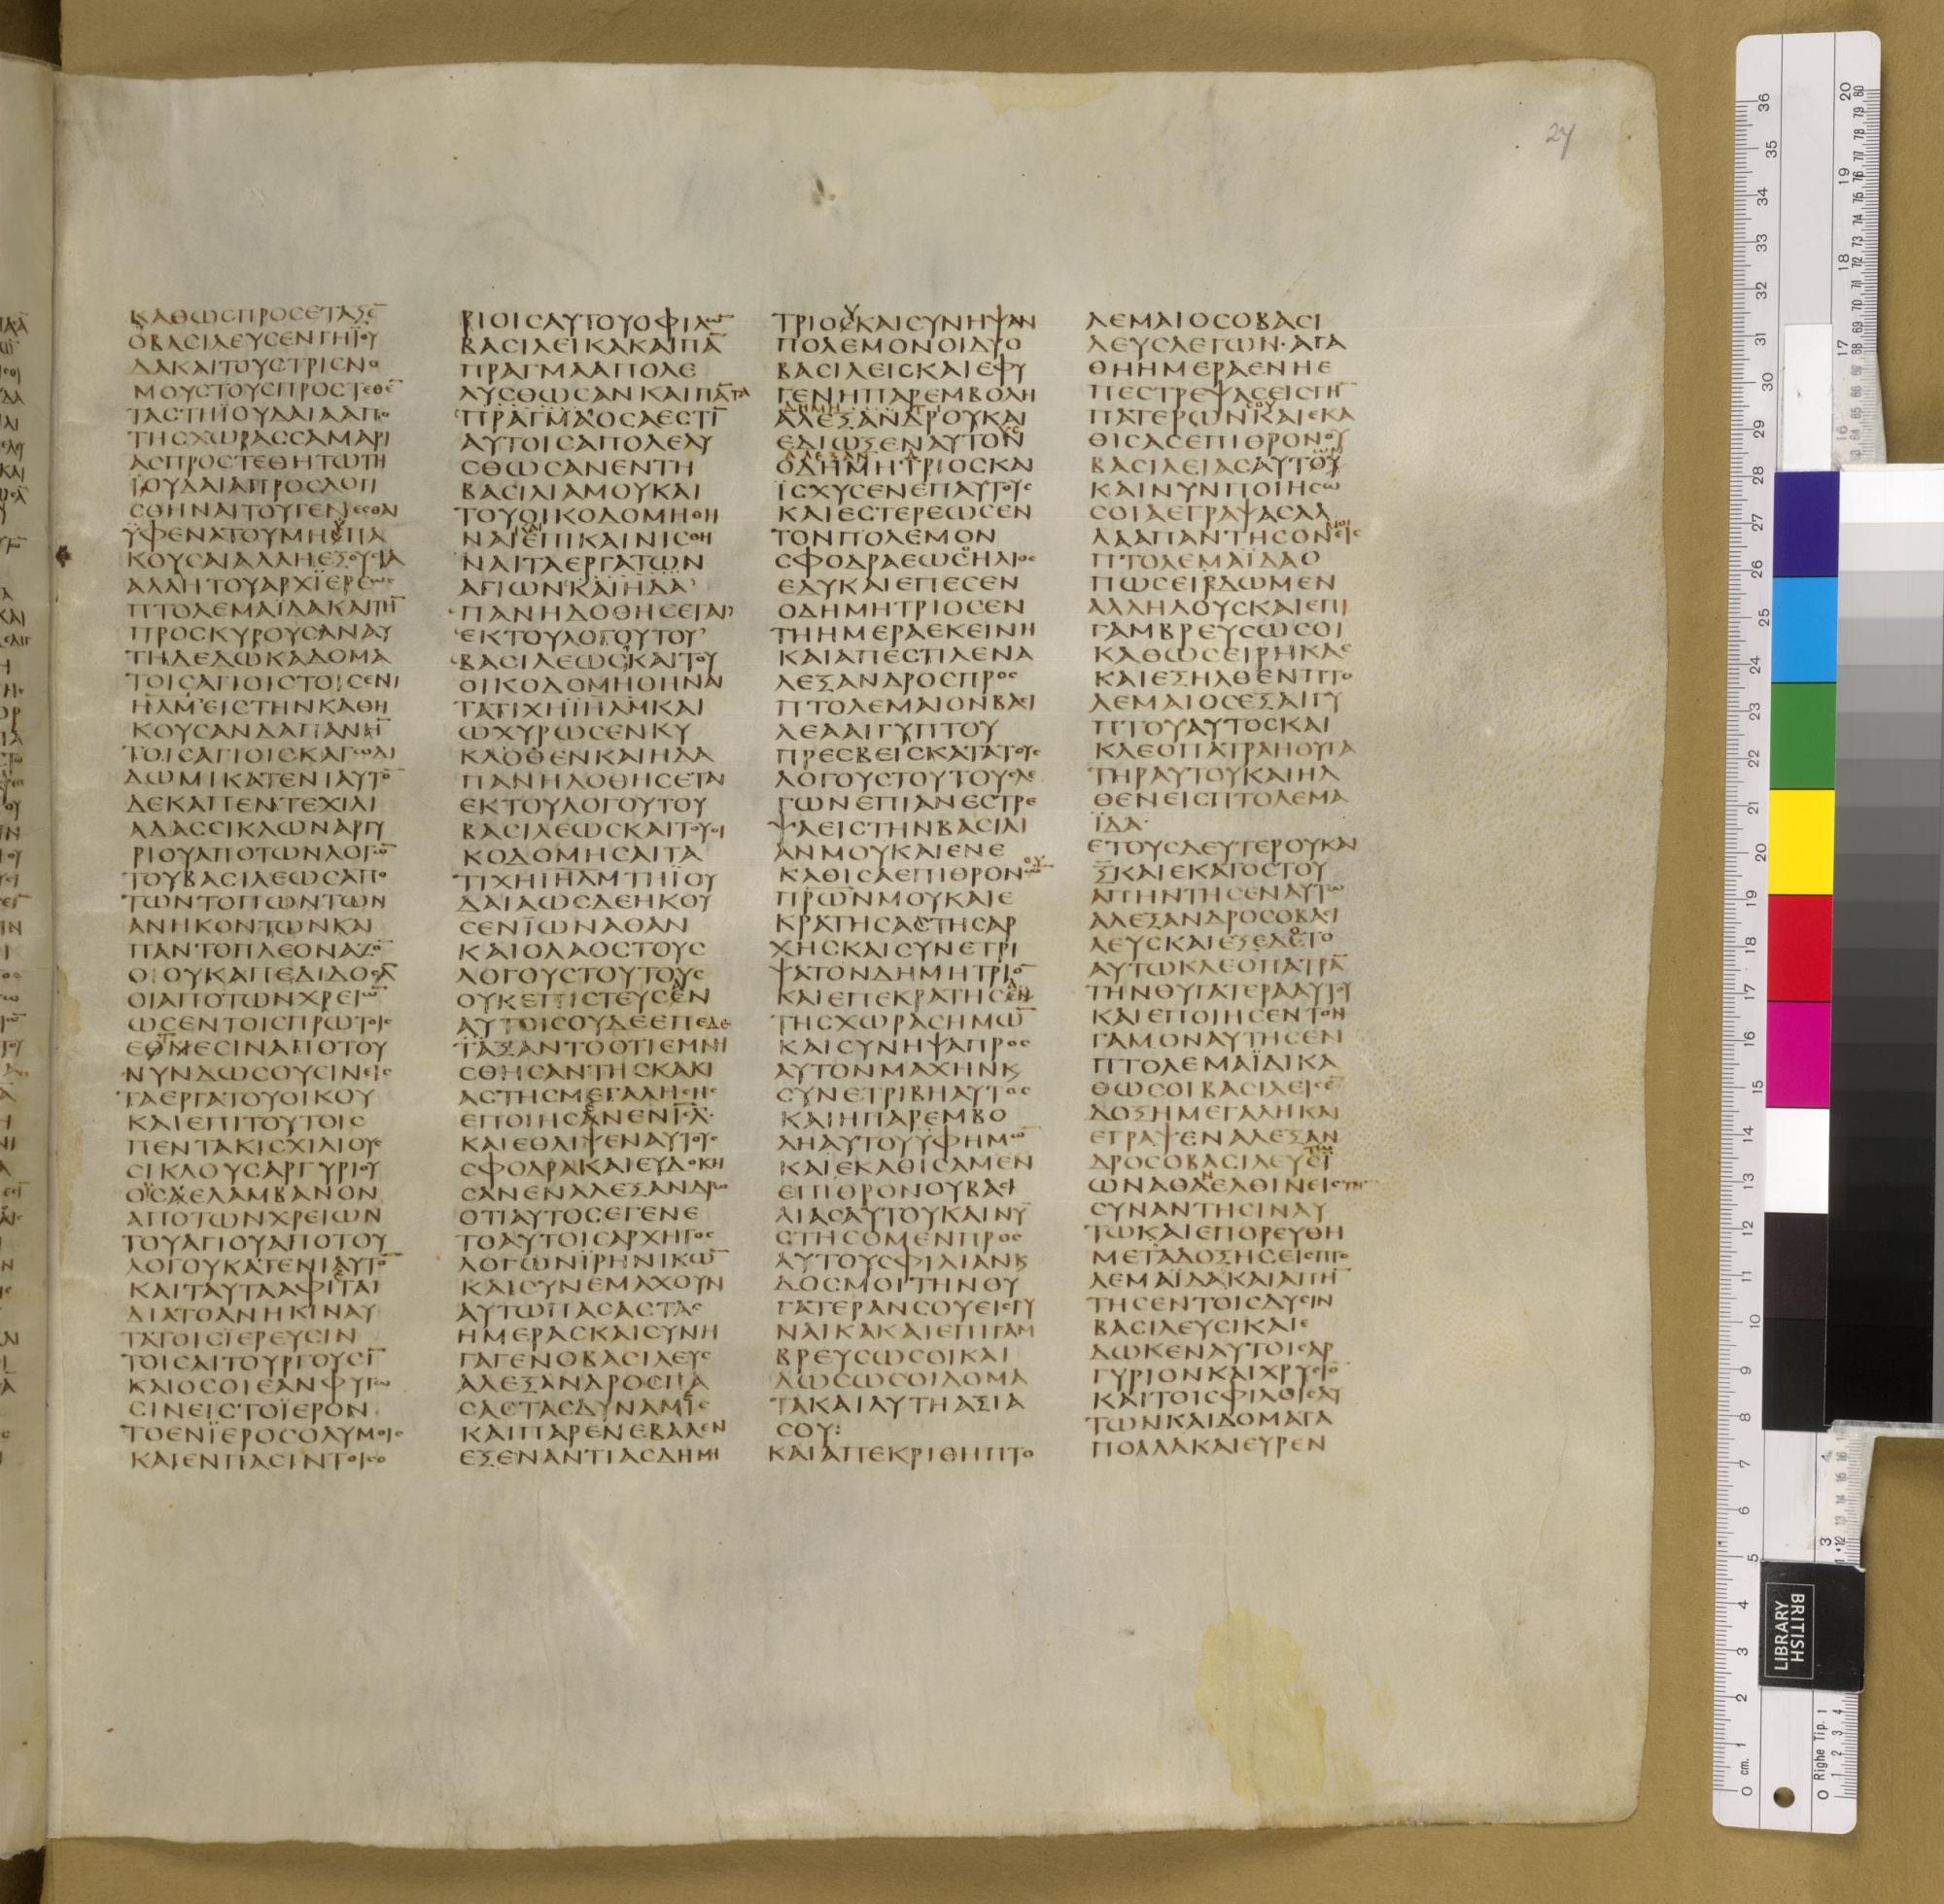 24
ΚΑΘΩCΠΡΟCΕΤΑΞΕ̅
ΟΒΑCΙΛΕΥCΕΝΓΗΪΟΥ
ΔΑΚΑΙΤΟΥCΤΡΙCΝΟ
ΜΟΥCΤΟΥCΠΡΟCΤΕΘΕ̅
ΤΑCΤΗΪΟΥΔΑΙΑΑΠΟ
ΤΗCΧΩΡΑCCΑΜΑΡΙ
ΑCΠΡΟCΤΕΘΗΤΩΤΗ
ΪΟΥΔΑΙΑΠΡΟCΛΟΓΙ
CΘΗΝΑΙΤΟΥΓΕΝΕCΘΑΙ
ΥΦΕΝΑΤΟΥΜΗΫΠΑ
ΚΟΥCΑΙΑΛΛΗΕΞΟΥCΙΑ
ΑΛΛΗΤΟΥΑΡΧΙΕΡΕΩC
ΠΤΟΛΕΜΑΪΔΑΚΑΙΤΗ̅
ΠΡΟCΚΥΡΟΥCΑΝΑΥ
ΤΗΔΕΔΩΚΑΔΟΜΑ
ΤΟΙCΑΓΙΟΙCΤΟΙCΕΝΙ
ΗΛΜΕΙCΤΗΝΚΑΘΗ
ΚΟΥCΑΝΔΑΠΑΝΗ̅
ΤΟΙCΑΓΙΟΙCΚΑΓΩΔΙ
ΔΩΜΙΚΑΤΕΝΙΑΥΤΟ̅
ΔΕΚΑΠΕΝΤΕΧΙΛΙ
ΑΔΑCCΙΚΛΩΝΑΡΓΥ
ΡΙΟΥΑΠΟΤΩΝΛΟΓΩ̅
ΤΟΥΒΑCΙΛΕΩCΑΠΟ
ΤΩΝΤΟΠΩΝΤΩΝ
ΑΝΗΚΟΝΤΩΝΚΑΙ
ΠΑΝΤΟΠΛΕΟΝΑΖΟ̅
ΟΙΟΥΚΑΠΕΔΙΔΟCΑ̅
ΟΙΑΠΟΤΩΝΧΡΕΙΩ̅
ΩCΕΝΤΟΙCΠΡΩΤΟΙC
ΕΘΝΕCΙΝΑΠΟΤΟΥ
ΝΥΝΔΩCΟΥCΙΝΕΙC
ΤΑΕΡΓΑΤΟΥΟΙΚΟΥ
ΚΑΙΕΠΙΤΟΥΤΟΙC
ΠΕΝΤΑΚΙCΧΙΛΙΟΥC
CΙΚΛΟΥCΑΡΓΥΡΙΟΥ
ΟΫCΑΕΛΑΜΒΑΝΟΝ
ΑΠΟΤΩΝΧΡΕΙΩΝ
ΤΟΥΑΓΙΟΥΑΠΟΤΟΥ
ΛΟΓΟΥΚΑΤΕΝΙΑΥΤΟ̅
ΚΑΙΤΑΥΤΑΑΦΙΤΑΙ
ΔΙΑΤΟΑΝΗΚΙΝΑΥ
ΤΑΤΟΙCΪΕΡΕΥCΙΝ
ΤΟΙCΛΙΤΟΥΡΓΟΥCΙ̅
ΚΑΙΟCΟΙΕΑΝΦΥΓΩ
CΙΝΕΙCΤΟΪΕΡΟΝ
ΤΟΕΝΪΕΡΟCΟΛΥΜΟΙC
ΚΑΙΕΝΠΑCΙΝΤΟΙCΟ
ΡΙΟΙCΑΥΤΟΥΟΦΙΛΩ̅
ΒΑCΙΛΕΙΚΑΚΑΙΠΑ̅
ΠΡΑΓΜΑΑΠΟΛΕ
ΛΥCΘΩCΑΝΚΑΙΠΑ̅ΤΑ
ΠΡΑΓΜΑΟCΑΕCΤΙ̅
ΑΥΤΟΙCΑΠΟΛΕΛΥ
CΘΩCΑΝΕΝΤΗ
ΒΑCΙΛΙΑΜΟΥΚΑΙ
ΤΟΥΟΙΚΟΔΟΜΗΘΗ
ΝΑΙΕΠΙΚΑΙΝΙCΘΗ
ΝΑΙΤΑΕΡΓΑΤΩΝ
ΑΓΙΩΝΚΑΙΗΔΑ
ΠΑΝΗΔΟΘΗCΕΤΑΙ
ΕΚΤΟΥΛΟΓΟΥΤΟΥ
ΒΑCΙΛΕΩCΚΑΙΤΟΥ
ΟΙΚΟΔΟΜΗΘΗΝΑΙ
ΤΑΤΙΧΗΪΗΛΜΚΑΙ
ΩΧΥΡΩCΕΝΚΥ
ΚΛΟΘΕΝΚΑΙΗΔΑ
ΠΑΝΗΔΟΘΗCΕΤΑΙ
ΕΚΤΟΥΛΟΓΟΥΤΟΥ
ΒΑCΙΛΕΩCΚΑΙΤΟΥΟΙ
ΚΟΔΟΜΗCΑΙΤΑ
ΤΙΧΗΪΗΛΜΤΗΪΟΥ
ΔΑΙΑΩCΔΕΗΚΟΥ
CΕΝΪΩΝΑΘΑΝ
ΚΑΙΟΛΑΟCΤΟΥC
ΛΟΓΟΥCΤΟΥΤΟΥC
ΟΥΚΕΠΙCΤΕΥCΕΝ
ΑΥΤΟΙCΟΥΔΕΕΠΕΔΕ
ΤΑΞΑΝΤΟΟΤΙΕΜΝΗ
CΘΗCΑΝΤΗCΚΑΚΙ
ΑCΤΗCΜΕΓΑΛΗCΗC
ΕΠΟΙΗCΑΝΕΝΙ̅C̅Λ̅
ΚΑΙΕΘΛΙΨΕΝΑΥΤΟΥC
CΦΟΔΡΑΚΑΙΕΥΔΟΚΗ
CΑΝΕΝΑΛΕΞΑΝΔΡΩ
ΟΤΙΑΥΤΟCΕΓΕΝΕ
ΤΟΑΥΤΟΙCΑΡΧΗΓΟC
ΛΟΓΩΝΪΡΗΝΙΚΩ̅
ΚΑΙCΥΝΕΜΑΧΟΥΝ
ΑΥΤΩΠΑCΑCΤΑC
ΗΜΕΡΑCΚΑΙCΥΝΗ
ΓΑΓΕΝΟΒΑCΙΛΕΥC
ΑΛΕΞΑΝΔΡΟCΠΑ
CΑCΤΑCΔΥΝΑΜΙC
ΚΑΙΠΑΡΕΝΕΒΑΛΕΝ
ΕΞΕΝΑΝΤΙΑCΔΗΜΗ
ΤΡΙΟCΚΑΙCΥΝΗΨΑΝ
ΠΟΛΕΜΟΝΟΙΔΥΟ
ΒΑCΙΛΕΙCΚΑΙΕΦΥ
ΓΕΝΗΠΑΡΕΜΒΟΛΗ
ΑΛΕΞΑΝΔΡΟΥΚΑΙ
ΕΔΙΩΞΕΝΑΥΤΟΝ
ΟΔΗΜΗΤΡΙΟCΚΑΙ
ΪCΧΥCΕΝΕΠΑΥΤΟΥC
ΚΑΙΕCΤΕΡΕΩCΕΝ
ΤΟΝΠΟΛΕΜΟΝ
CΦΟΔΡΑΕΩCΗΛΙΟC
ΕΔΥΚΑΙΕΠΕCΕΝ
ΟΔΗΜΗΤΡΙΟCΕΝ
ΤΗΗΜΕΡΑΕΚΕΙΝΗ
ΚΑΙΑΠΕCΤΙΛΕΝΑ
ΛΕΞΑΝΔΡΟCΠΡΟC
ΠΤΟΛΕΜΑΙΟΝΒΑCΙ
ΛΕΑΑΙΓΥΠΤΟΥ
ΠΡΕCΒΕΙCΚΑΤΑΤΟΥC
ΛΟΓΟΥCΤΟΥΤΟΥCΛΕ
ΓΩΝΕΠΙΑΝΕCΤΡΕ
ΨΑΕΙCΤΗΝΒΑCΙΛΙ
ΑΝΜΟΥΚΑΙΕΝΕ
ΚΑΘΙCΑΕΠΙΘΡΟΝΩ̅
ΠΡΩΝΜΟΥΚΑΙΕ
ΚΡΑΤΗCΑCΤΗCΑΡ
ΧΗCΚΑΙCΥΝΕΤΡΙ
ΨΑΤΟΝΔΗΜΗΤΡΙΟ̅
ΚΑΙΕΠΕΚΡΑΤΗCΕΝ
ΤΗCΧΩΡΑCΗΜΩ̅
ΚΑΙCΥΝΗΨΑΠΡΟC
ΑΥΤΟΝΜΑΧΗΝΚ
CΥΝΕΤΡΙΒΗΑΥΤΟC
ΚΑΙΗΠΑΡΕΜΒΟ
ΛΗΑΥΤΟΥΥΦΗΜΩ̅
ΚΑΙΕΚΑΘΙCΑΜΕΝ
ΕΠΙΘΡΟΝΟΥΒΑCΙ
ΛΙΑCΑΥΤΟΥΚΑΙΝΥ̅
CΤΗCΟΜΕΝΠΡΟC
ΑΥΤΟΥCΦΙΛΙΑΝΚ
ΔΟCΜΟΙΤΗΝΘΥ
ΓΑΤΕΡΑΝCΟΥΕΙCΓΥ
ΝΑΙΚΑΚΑΙΕΠΙΓΑΜ
ΒΡΕΥCΩCΟΙΚΑΙ
ΔΩCΩCΟΙΔΟΜΑ
ΤΑΚΑΙΑΥΤΗΑΞΙΑ
CΟΥ:
ΚΑΙΑΠΕΚΡΙΘΗΠΤΟ
ΛΕΜΑΙΟCΟΒΑCΙ
ΛΕΥCΛΕΓΩΝ·ΑΓΑ
ΘΗΗΜΕΡΑΕΝΗΕ
ΠΕCΤΡΕΨΑCΕΙCΓΗ̅
ΠΑΤΕΡΩΝΚΑΙΕΚΑ
ΘΙCΑCΕΠΙΘΡΟΝΟΥ
ΒΑCΙΛΕΙΑCΑΥΤΟΥ
ΚΑΙΝΥΝΠΟΙΗCΩ
CΟΙΑΕΓΡΑΨΑCΑΛ
ΛΑΑΠΑΝΤΗCΟΝΕΙC
ΠΤΟΛΕΜΑΪΔΑΟ
ΠΩCΕΙΔΩΜΕΝ
ΑΛΛΗΛΟΥCΚΑΙΕΠΙ
ΓΑΜΒΡΕΥCΩCΟΙ
ΚΑΘΩCΕΙΡΗΚΑC
ΚΑΙΕΞΗΛΘΕΝΠΤΟ
ΛΕΜΑΙΟCΕΞΑΙΓΥ
ΠΤΟΥΑΥΤΟCΚΑΙ
ΚΛΕΟΠΑΤΡΑΗΘΥΓΑ
ΤΗΡΑΥΤΟΥΚΑΙΗΛ
ΘΕΝΕΙCΠΤΟΛΕΜΑ
ΪΔΑ·
ΕΤΟΥCΔΕΥΤΕΡΟΥΚΑΙ
ΞΚΑΙΕΚΑΤΟCΤΟΥ
ΑΠΗΝΤΗCΕΝΑΥΤΩ
ΑΛΕΞΑΝΔΡΟCΟΒΑCΙ
ΛΕΥCΚΑΙΕΞΕΔΕΤΟ
ΑΥΤΩΚΛΕΟΠΑΤΡΑ̅
ΤΗΝΘΥΓΑΤΕΡΑΑΥΤΟΥ
ΚΑΙΕΠΟΙΗCΕΝΤΟΝ
ΓΑΜΟΝΑΥΤΗCΕΝ
ΠΤΟΛΕΜΑΪΔΙΚΑ
ΘΩCΟΙΒΑCΙΛΕΙCΕ̅
ΔΟΞΗΜΕΓΑΛΗΚΑΙ
ΕΓΡΑΨΕΝΑΛΕΞΑΝ
ΔΡΟCΟΒΑCΙΛΕΥCΪ
ΩΝΑΘΑΕΛΘΙΝΕΙC
CΥΝΑΝΤΗCΙΝΑΥ
ΤΩΚΑΙΕΠΟΡΕΥΘΗ
ΜΕΤΑΔΟΞΗCΕΙCΠΤΟ
ΛΕΜΑΪΔΑΚΑΙΑΠΗ̅
ΤΗCΕΝΤΟΙCΔΥCΙΝ
ΒΑCΙΛΕΥCΙΚΑΙΕ
ΔΩΚΕΝΑΥΤΟΙCΑΡ
ΓΥΡΙΟΝΚΑΙΧΡΥCΙΟ̅
ΚΑΙΤΟΙCΦΙΛΟΙCΑΥ
ΤΩΝΚΑΙΔΟΜΑΤΑ
ΠΟΛΛΑΚΑΙΕΥΡΕΝ
LIBRARY
BRITISH
cm.
Righe Tip.